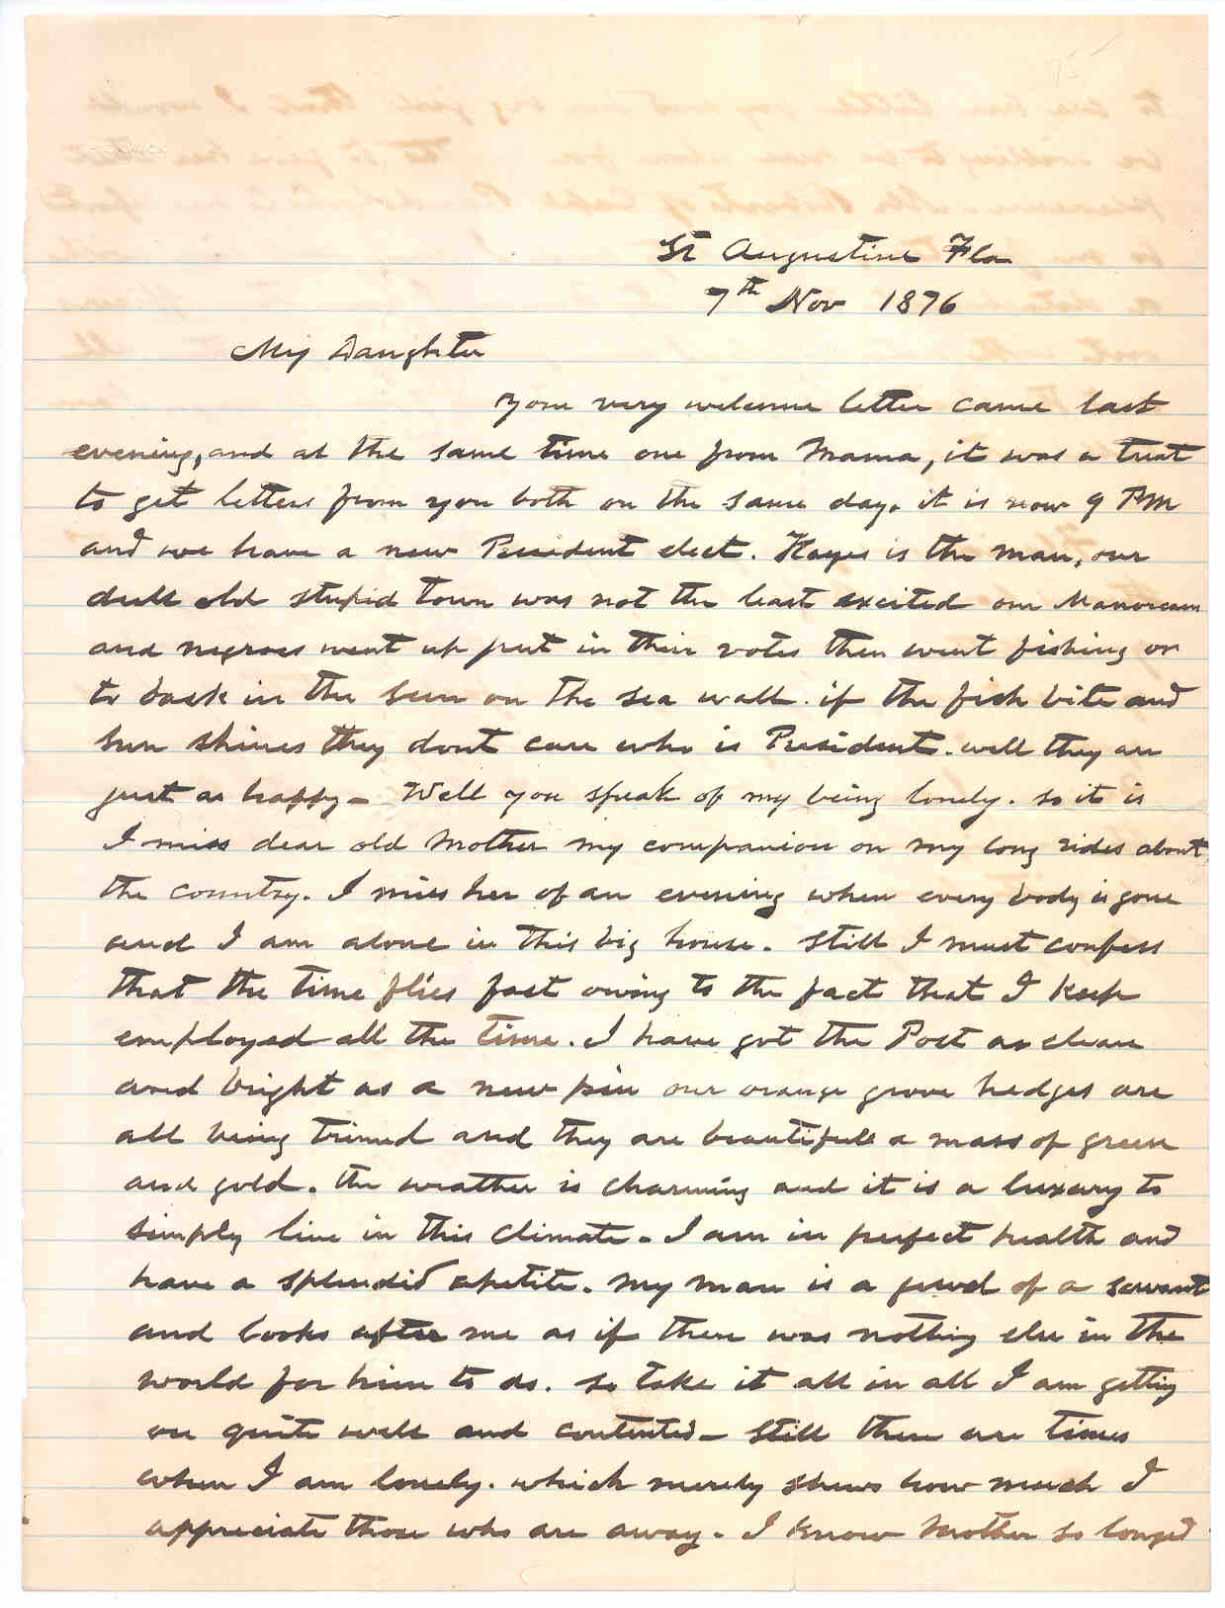 St Augustine Fla
7th Nov 1876
My Daughter
Your very welcome letter came last
evening, and at the same time one from Mama, it was a treat
to get letters from you both on the same day. it is now 9 PM
and we have a new President elect. Hayes is the man, our
dull old stupid town was not the least excited our
and negroes went up put in their votes then went fishing or
to bask in the sun on the sea wall. if the fish bite and
sun shines they dont care who is President. well they are
just as happy – Well you speak of my being lonely. so it is
I miss dear old Mother my companion on my long rides about
the country. I miss her of an evening when every body is gone
and I am alone in this big house. Still I must confess
that the time flies fast owing to the fact that I keep
employed all the time. I have got the Post as clean
and bright as a new pin our orange grove hedges are
all being trimed and they are beautifull a mass of green
and gold. the weather is charming and it is a luxury to
simply live in this climate. I am in perfect health and
have a splendid apetite. my man is a jewel of a servant
and looks after me as if there was nothing else in the
world for him to do. so take it all in all I am getting
on quite well and contented – Still there are times
when I am lonely. which merely shews how much I
appreciate those who are away. I know Mother so longed